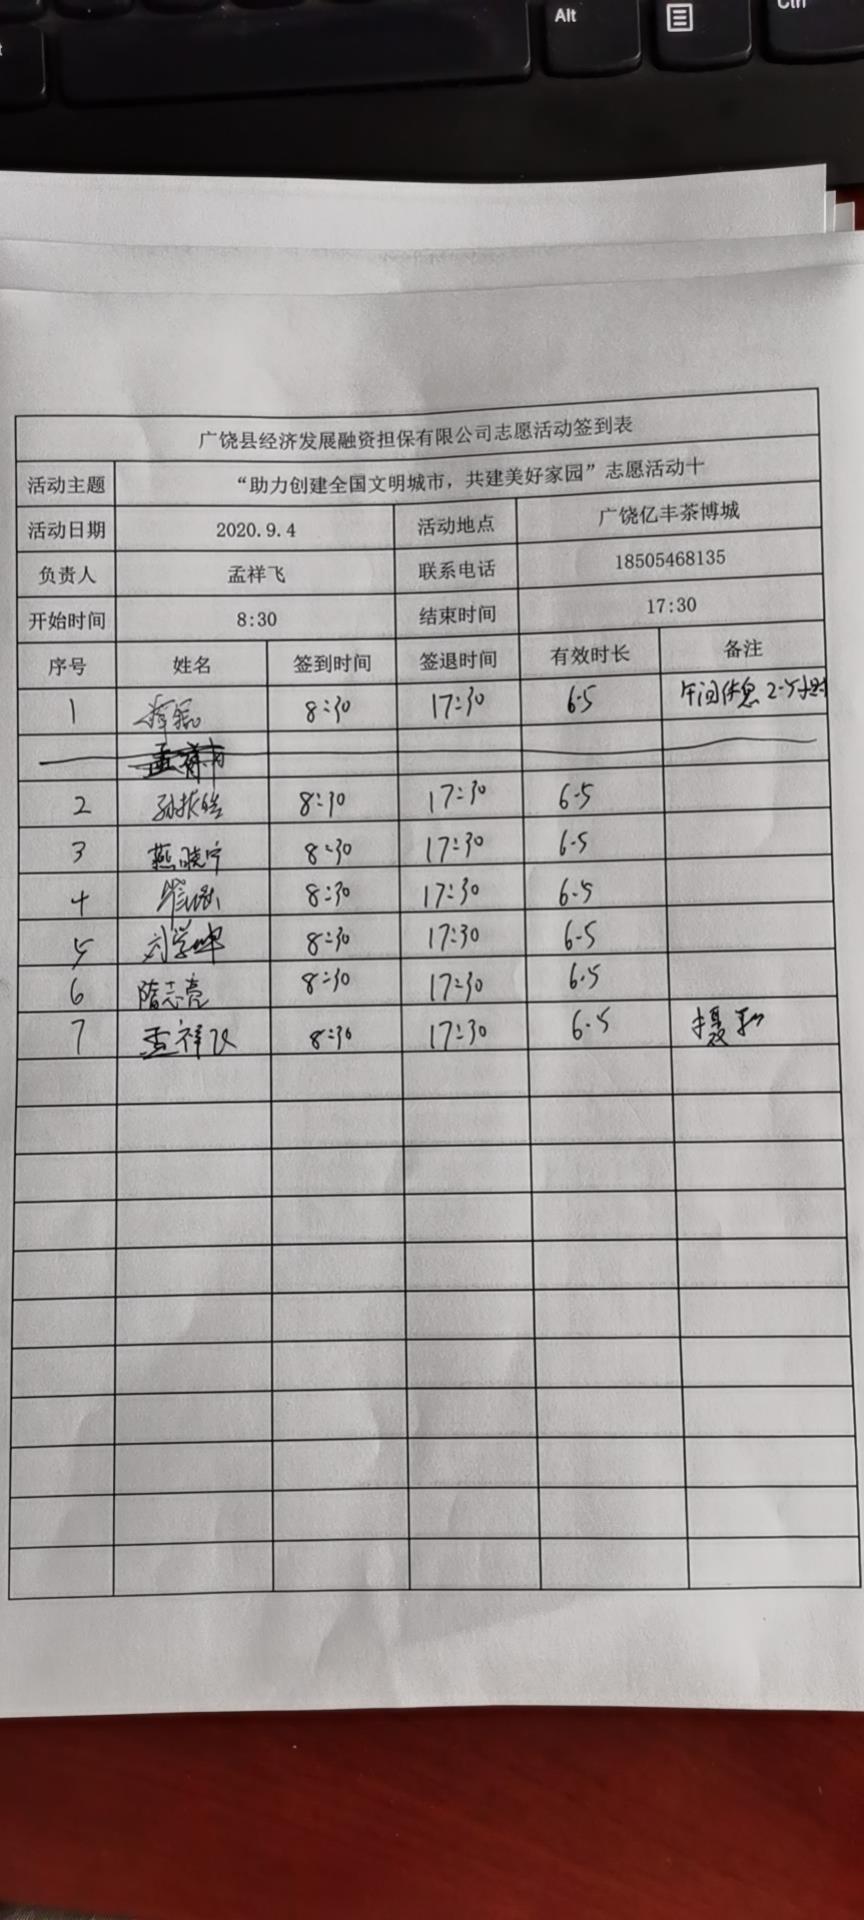 Alt
Ctrl
广饶县经济发展融资担保有限公司志愿活动签到表
活动主题 “助力创建全国文明城市，共建美好家园”志愿活动十
活动日期 2020.9.4 活动地点 广饶亿丰茶博城
负责人 孟祥飞 联系电话 18505468135
开始时间 8:30 结束时间 17:30
序号 姓名 签到时间 签退时间 有效时长 备注
1 8:30 17:30 6.5 午间休息2.5小时
2 8:30 17:30 6.5
3 燕晓宁 8:30 17:30 6.5
4 8:30 17:30 6.5
5 刘学坤 8:30 17:30 6.5
6 隋志亮 8:30 17:30 6.5
7 孟祥飞 8:30 17:30 6.5 摄影